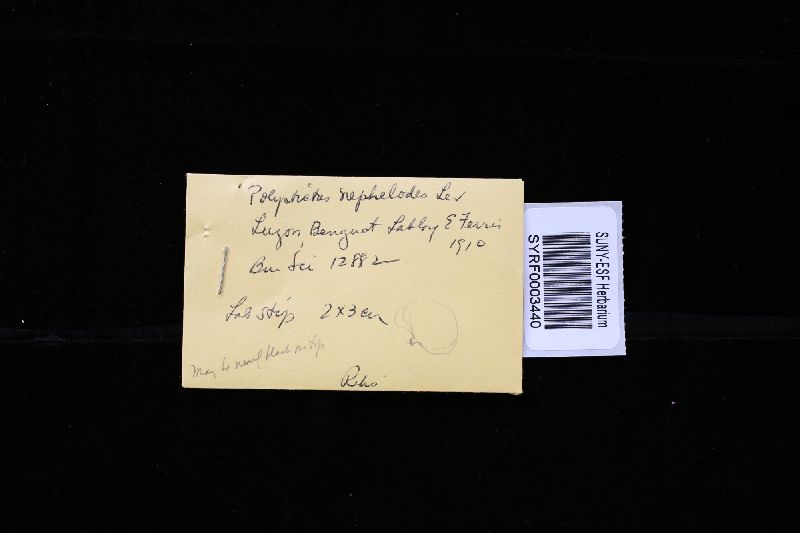 Polystictus nephelodes Lev
Luzon, Benguet Subprov E Fenix
1910
Bur Sci 12882
Lat stip 2x3 cm
May be nearly black on top
SUNY-ESF Herbarium
SYRF0003440